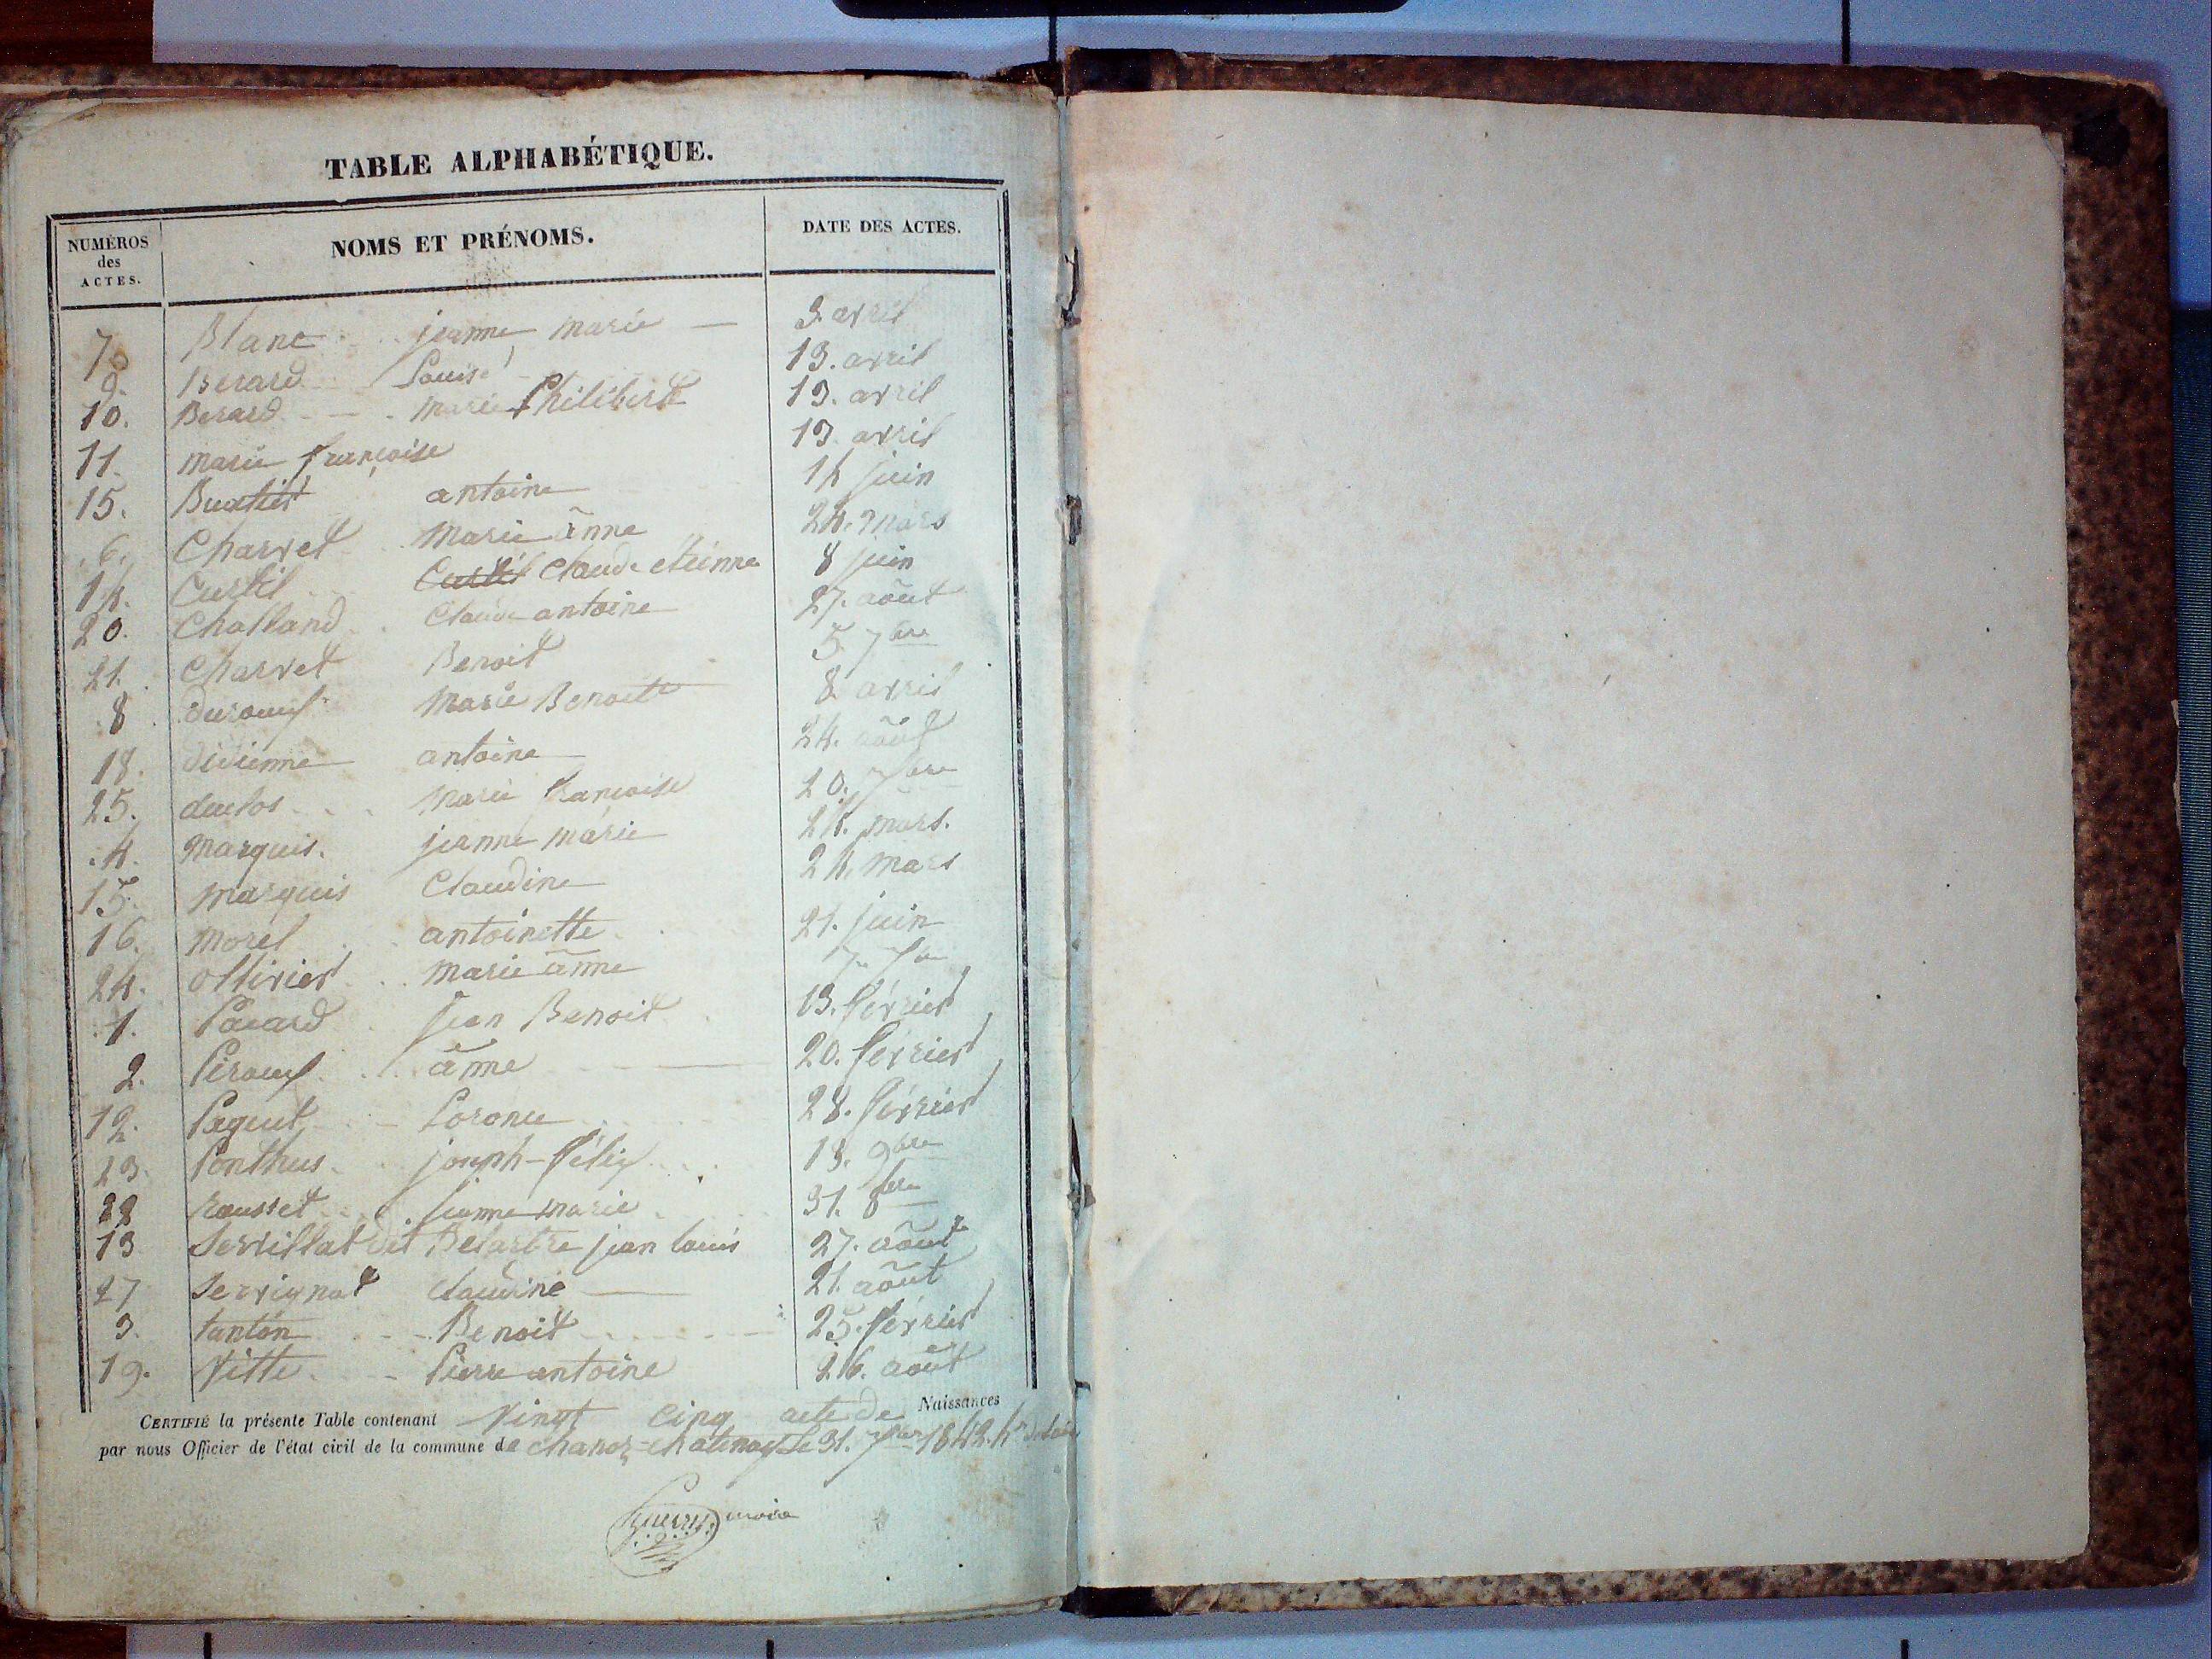 TABLE ALPHABÉTIQUE.
NUMÉROS des ACTES. NOMS ET PRÉNOMS. DATE DES ACTES.
7 Blanc jeanne marie 3. avril
9. Berard Louise 13. avril
10. Berard marie Philiberte 13. avril
11. marie françoise 13 avril
15. Buathier antoine 14 juin
6. Charvet Marie änne 24. mars
14. Curtil Curtil Claude etienne 8 juin
20. Challand Claude antoine 27. aôut
21. Charvet Benoit 5 7bre
8 durouf Marie Benoite 8 avril
18. divienne antoine 24. aôut
25. duclos marie françoise 20. 7bre
4. Marquis. jeanne marie 24. mars.
15. marquis Claudine 24. mars
16. Morel antoinette 21. juin
24. Ollivier marie änne 7. 7bre
1. Pacard jean Benoit 13. février
2. änne 20. février
12. Paguet 28. février
23. Ponthus joseph-félix 13. 9bre
22 rousset jeanne marie 31. 8bre
13 Servillat dit Delartre jean louis 27. aôut
27 Servignat Claudine 21. aôut
3. tanton Benoit 25. février
19. Vitte Pierre antoine 26. aôut
CERTIFIÉ la présente Table contenant Vingt Cinq acte de Naissances
par nous Officier de l'état civil de la commune de chanoz=chatenay Le 31. 1842.
maire